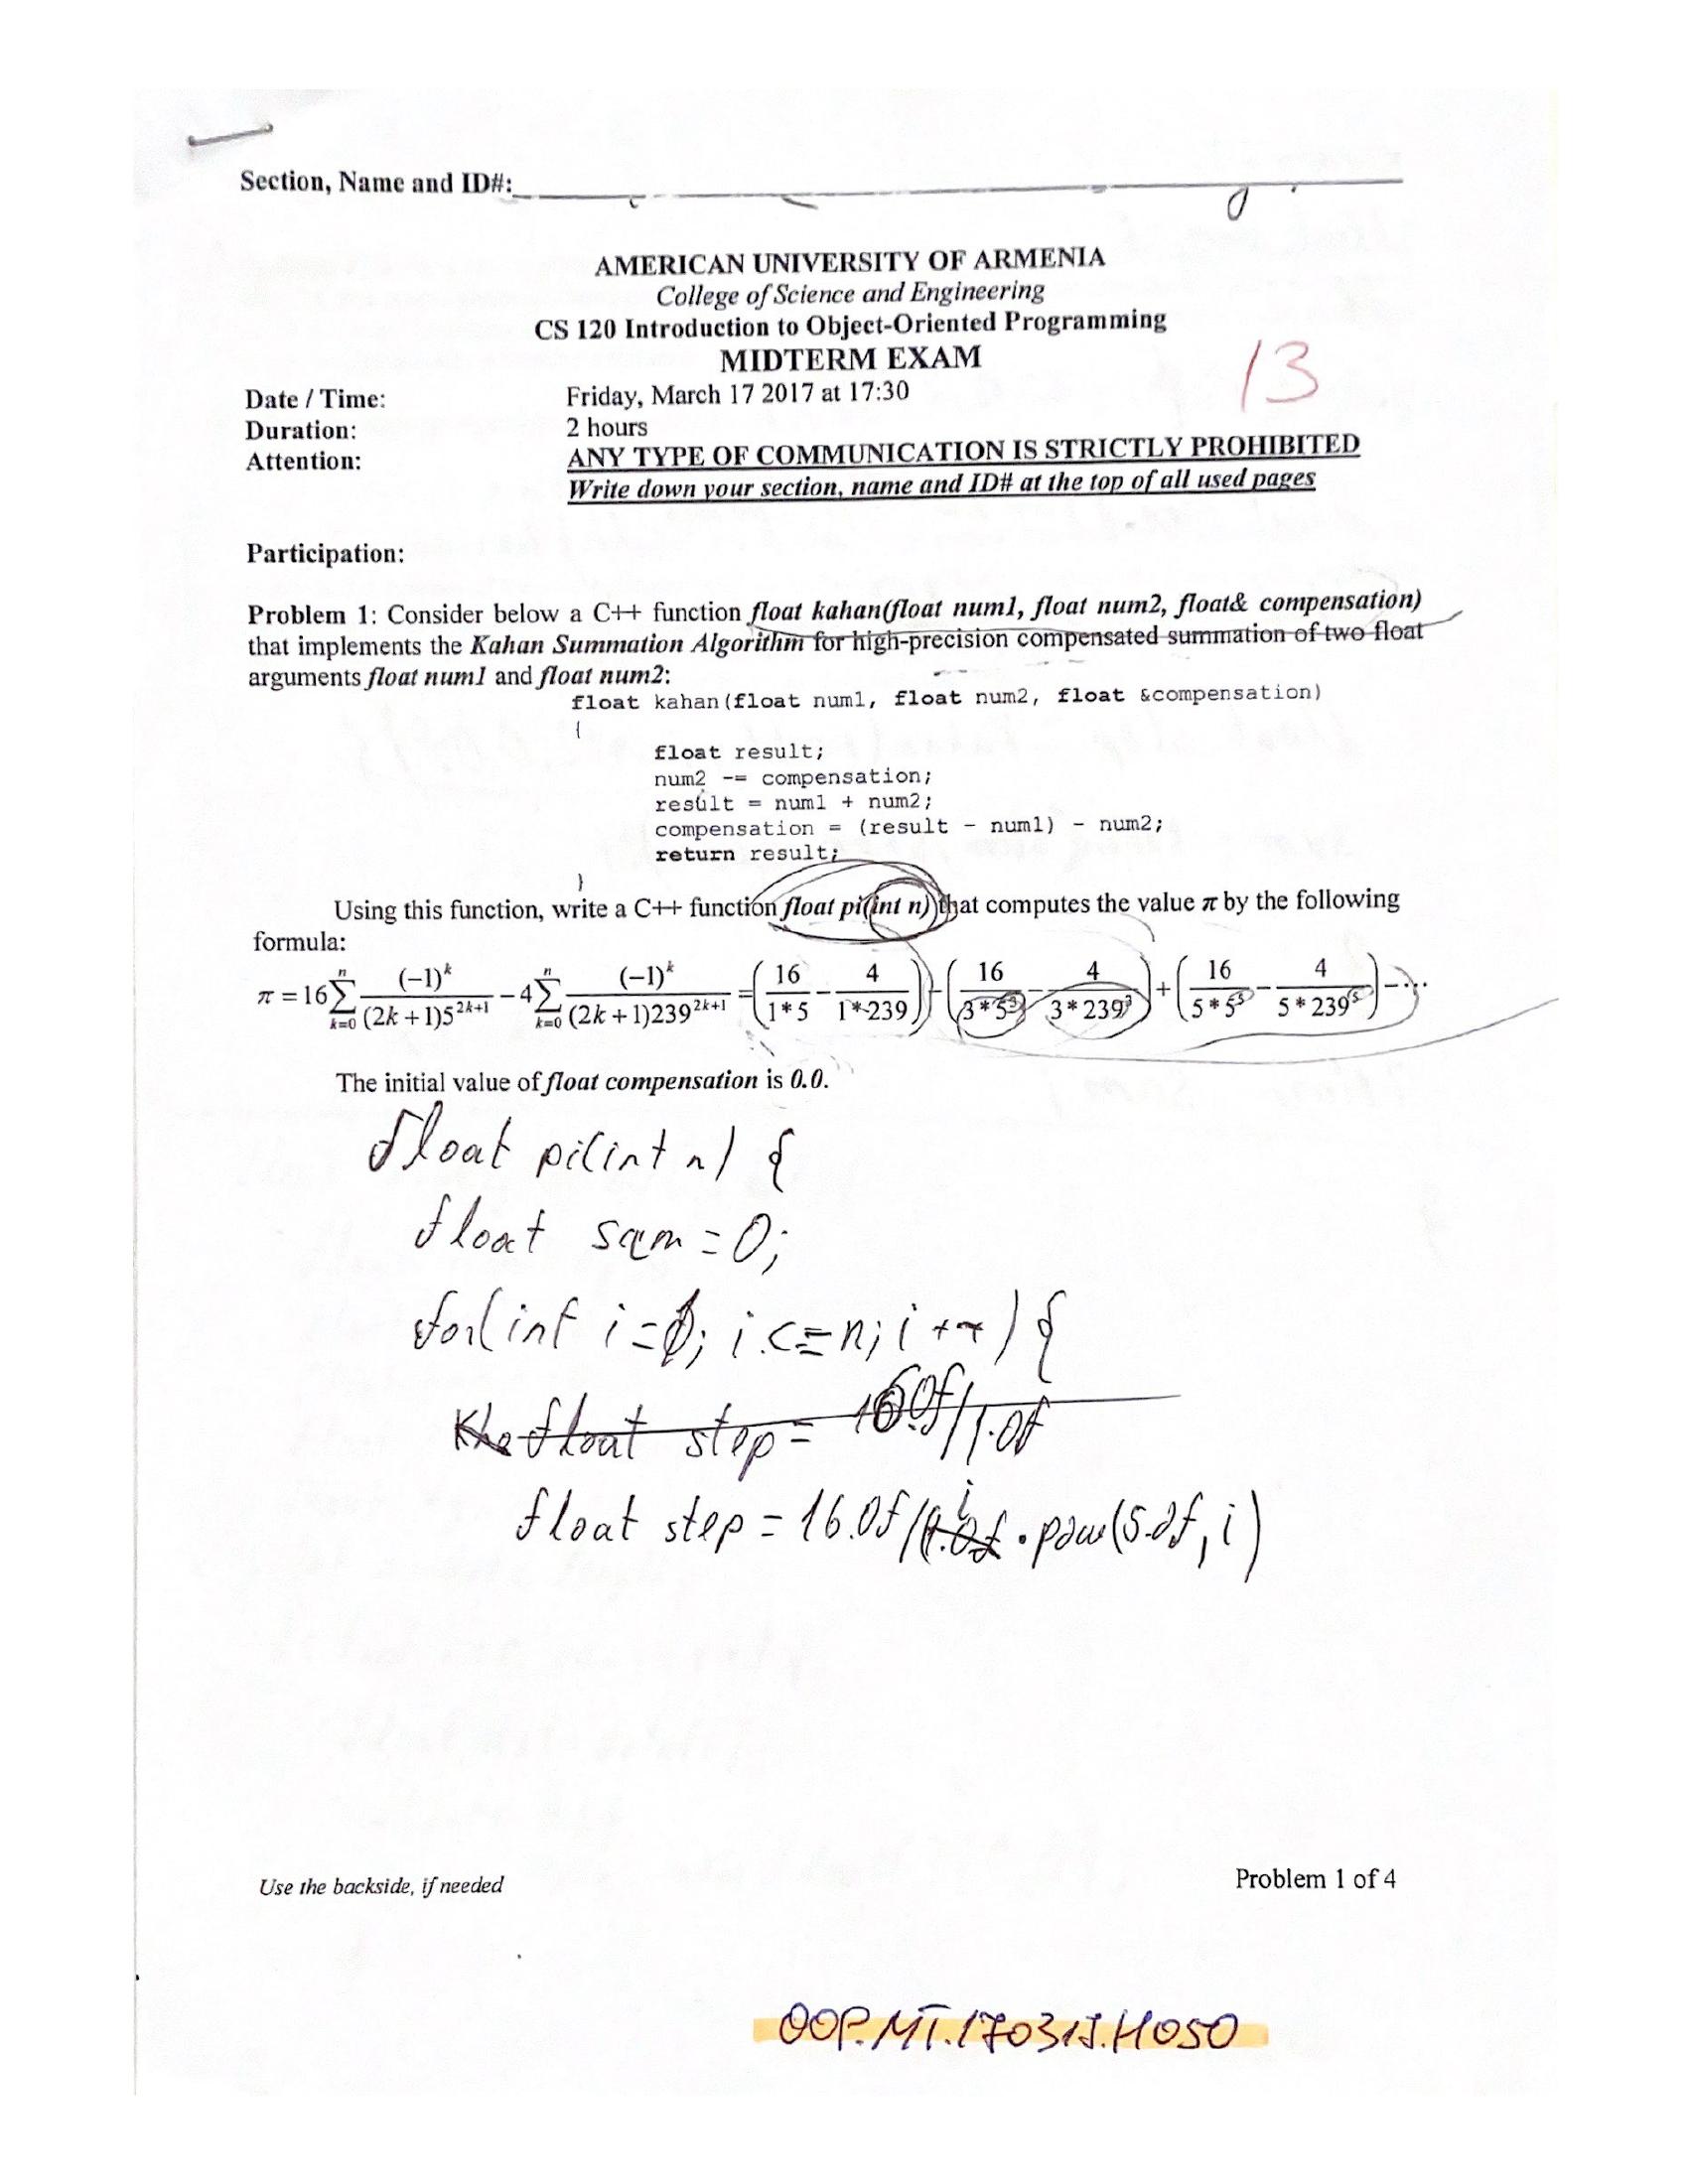 Section, Name and ID#:
AMERICAN UNIVERSITY OF ARMENIA
College of Science and Engineering
CS 120 Introduction to Object-Oriented Programming
MIDTERM EXAM
13
Date / Time: Friday, March 17 2017 at 17:30
Duration: 2 hours
Attention: ANY TYPE OF COMMUNICATION IS STRICTLY PROHIBITED
Write down your section, name and ID# at the top of all used pages
Participation:
Problem 1: Consider below a C++ function float kahan(float num1, float num2, float& compensation)
that implements the Kahan Summation Algorithm for high-precision compensated summation of two float
arguments float num1 and float num2:
float kahan(float num1, float num2, float &compensation)
{
float result;
num2 -= compensation;
result = num1 + num2;
compensation = (result - num1) - num2;
return result;
}
Using this function, write a C++ function float pi(int n) that computes the value π by the following
formula:
π = 16 Σ_{k=0}^{n} (-1)^k / ((2k+1)5^{2k+1}) - 4 Σ_{k=0}^{n} (-1)^k / ((2k+1)239^{2k+1}) = (16/(1*5) - 4/(1*239)) - (16/(3*5^3) - 4/(3*239^3)) + (16/(5*5^5) - 4/(5*239^5)) - ...
The initial value of float compensation is 0.0.
float pi(int n) {
float sum = 0;
for(int i=0; i<=n; i++) {
float step = 16.0f/1.0f
float step = 16.0f/(i * pow(5.0f, i)
Use the backside, if needed
Problem 1 of 4
OOP.MT.170317.H050